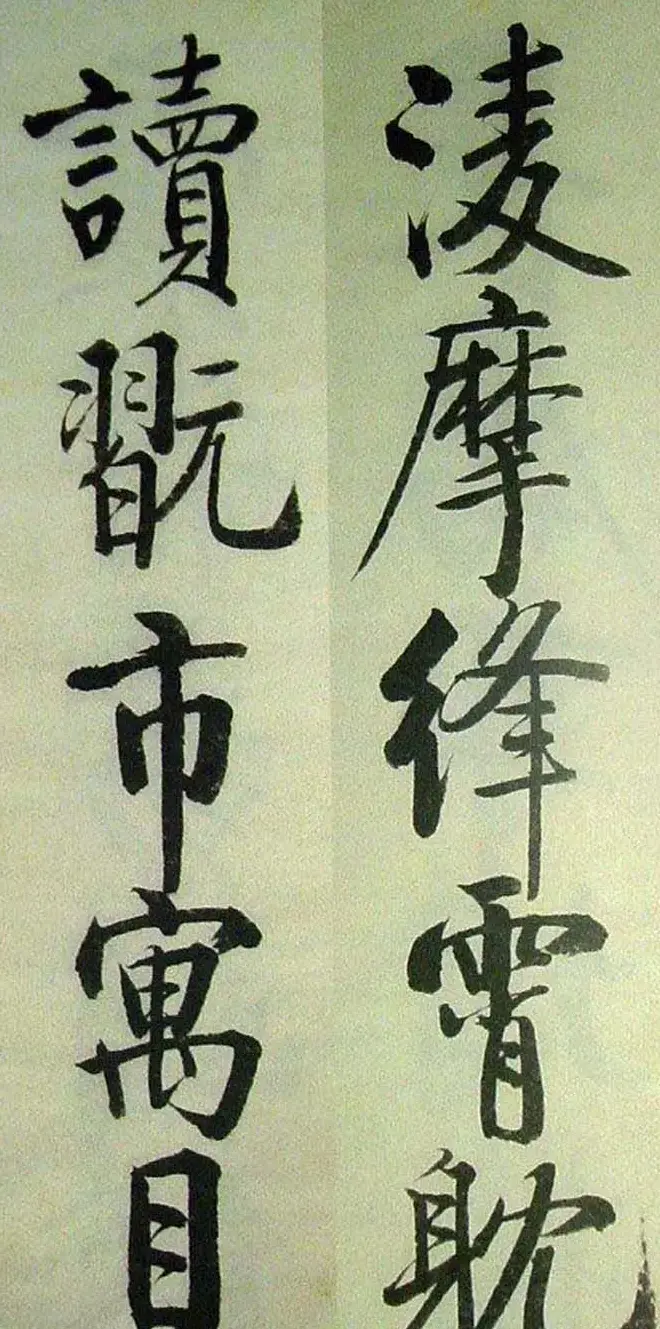 凌摩絳霄躭
讀翫市寓目